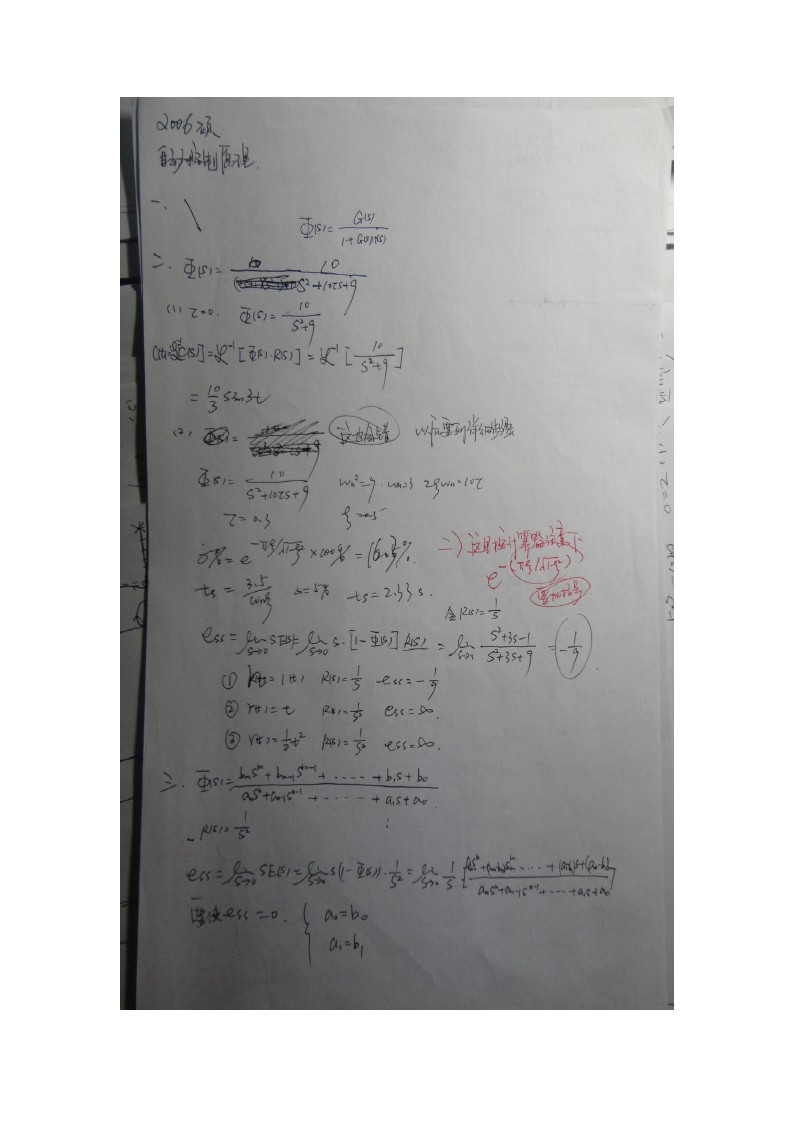 2006年硕
自动控制原理.
一.
Φ(s)= G(s) / 1+G(s)H(s)
二. Φ(s)= 10 / s²+10τs+9
(1) τ=0. Φ(s)= 10 / s²+9
C(t)=L⁻¹[C(s)]=L⁻¹[Φ(s)·R(s)]=L⁻¹[ 10 / s²+9 ]
= 10/3 sin3t
(2)
Φ(s)= 10 / s²+10τs+9 ωn²=9. ωn=3 2ξωn=10τ
τ=0.3 ξ=0.5
σ%=e^(-πξ/√1-ξ²) ×100%=16.3%.
ts= 3.5 / ωnξ Δ=5% ts=2.33s.
e^-(πξ/√1-ξ²)
要加括号
令R(s)=1/s
ess=lim s→0 sE(s)=lim s→0 s·[1-Φ(s)]R(s) = lim s→0 s²+3s-1 / s²+3s+9 =-1/9.
① r(t)=1(t) R(s)=1/s ess=-1/9
② r(t)=t R(s)=1/s² ess=∞.
③ r(t)=1/2t² R(s)=1/s³ ess=∞.
三. Φ(s)= bmsᵐ+bm-1sᵐ⁻¹+·····+b1s+b0 / ansⁿ+an-1sⁿ⁻¹+·····+a1s+a0
R(s)=1/s²
ess=lim s→0 sE(s)=lim s→0 s(1-Φ(s))·1/s²=lim s→0 1/s
要使ess=0. { a0=b0
a1=b1